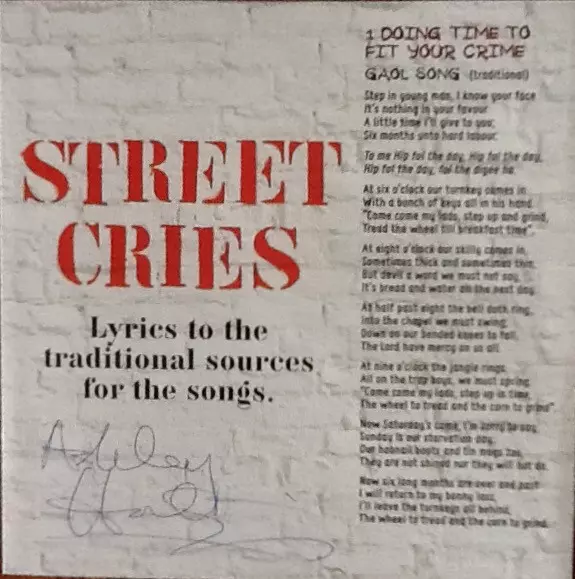 STREET
CRIES
Lyrics to the
traditional sources
for the songs.
Ashley
1 DOING TIME TO
FIT YOUR CRIME
GAOL SONG (traditional)
Step in young man, I know your face
It's nothing in your favour
A little time I'll give to you,
Six months unto hard labour.
To me Hip fol the day, Hip fol the day,
Hip fol the day, fol the digee ho
At six o'clock our turnkey comes in
With a bunch of keys all in his hand
"Come come my lads, step up and grind,
Tread the wheel till breakfast time".
At eight o'clock our skilly comes in,
Sometimes thick and sometimes thin
But devil a word we must not say
It's bread and water on the next day.
At half past eight the bell doth ring,
Into the chapel we must swing,
Down on our bended knees to fall,
The Lord have mercy on us all.
At nine o'clock the jangle rings,
All on the trap boys, we must spring
"Come come my lads, step up in time,
The wheel to tread and the corn to grind"
Now Saturday's come, I'm sorry to say,
Sunday is our starvation day,
Our hobnail boots and tin mugs too,
They are not shined nor they will not do.
Now six long months are over and past
I will return to my bonny lass,
I'll leave the turnkeys all behind,
The wheel to tread and the corn to grind.